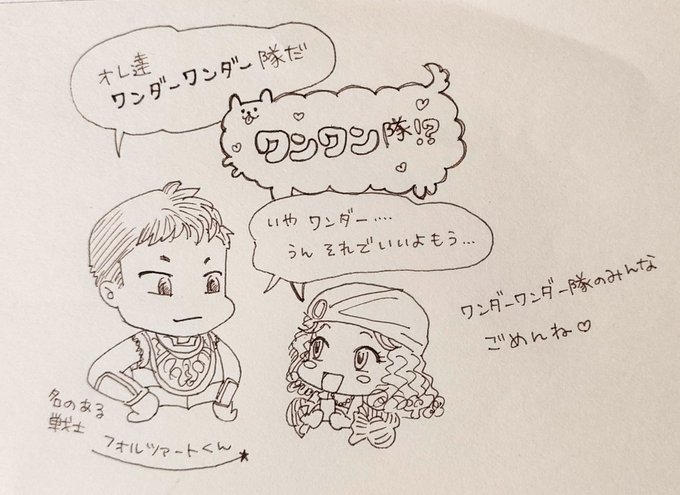 オレ達
ワンダーワンダー隊だ
ワンワン隊!?
いやワンダー....
うんそれでいいよもう...
ワンダーワンダー隊のみんな
ごめんね♡
名のある
戦士
フォルツァートくん